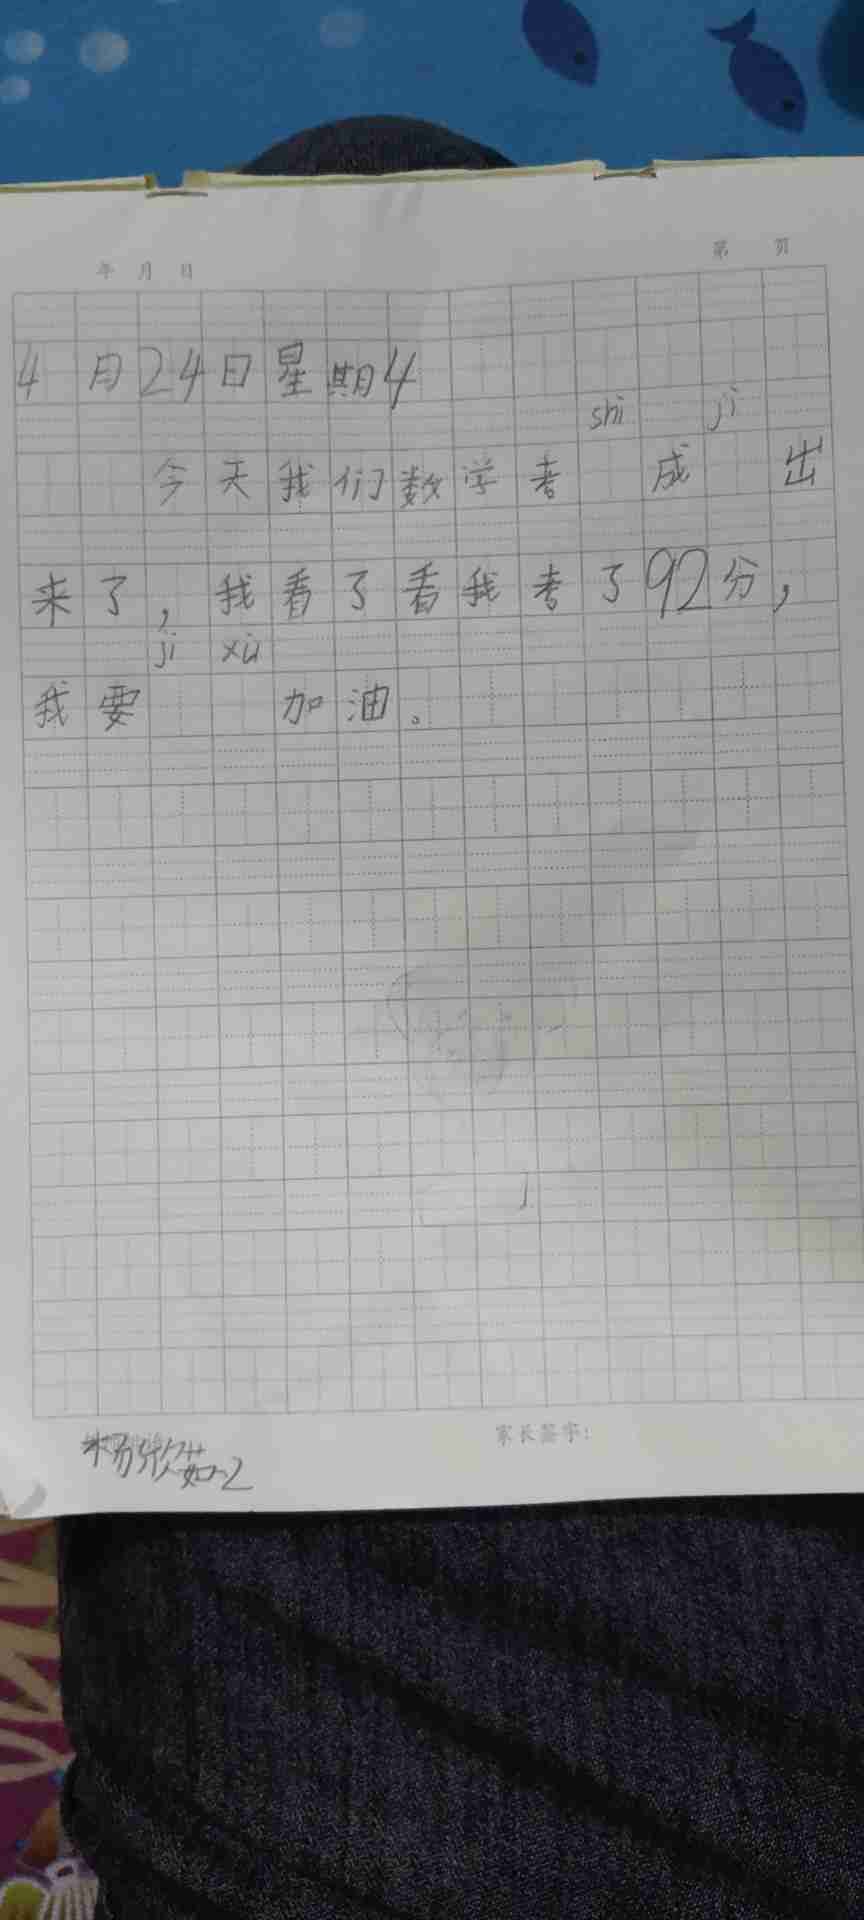 年 月 日 第 页
4月24日星期4
shì jì
今天我们数学考 成 出
来了，我看了看我考了92分，
jì xù
我要 加油。
家长签字：
杨欣茹-2